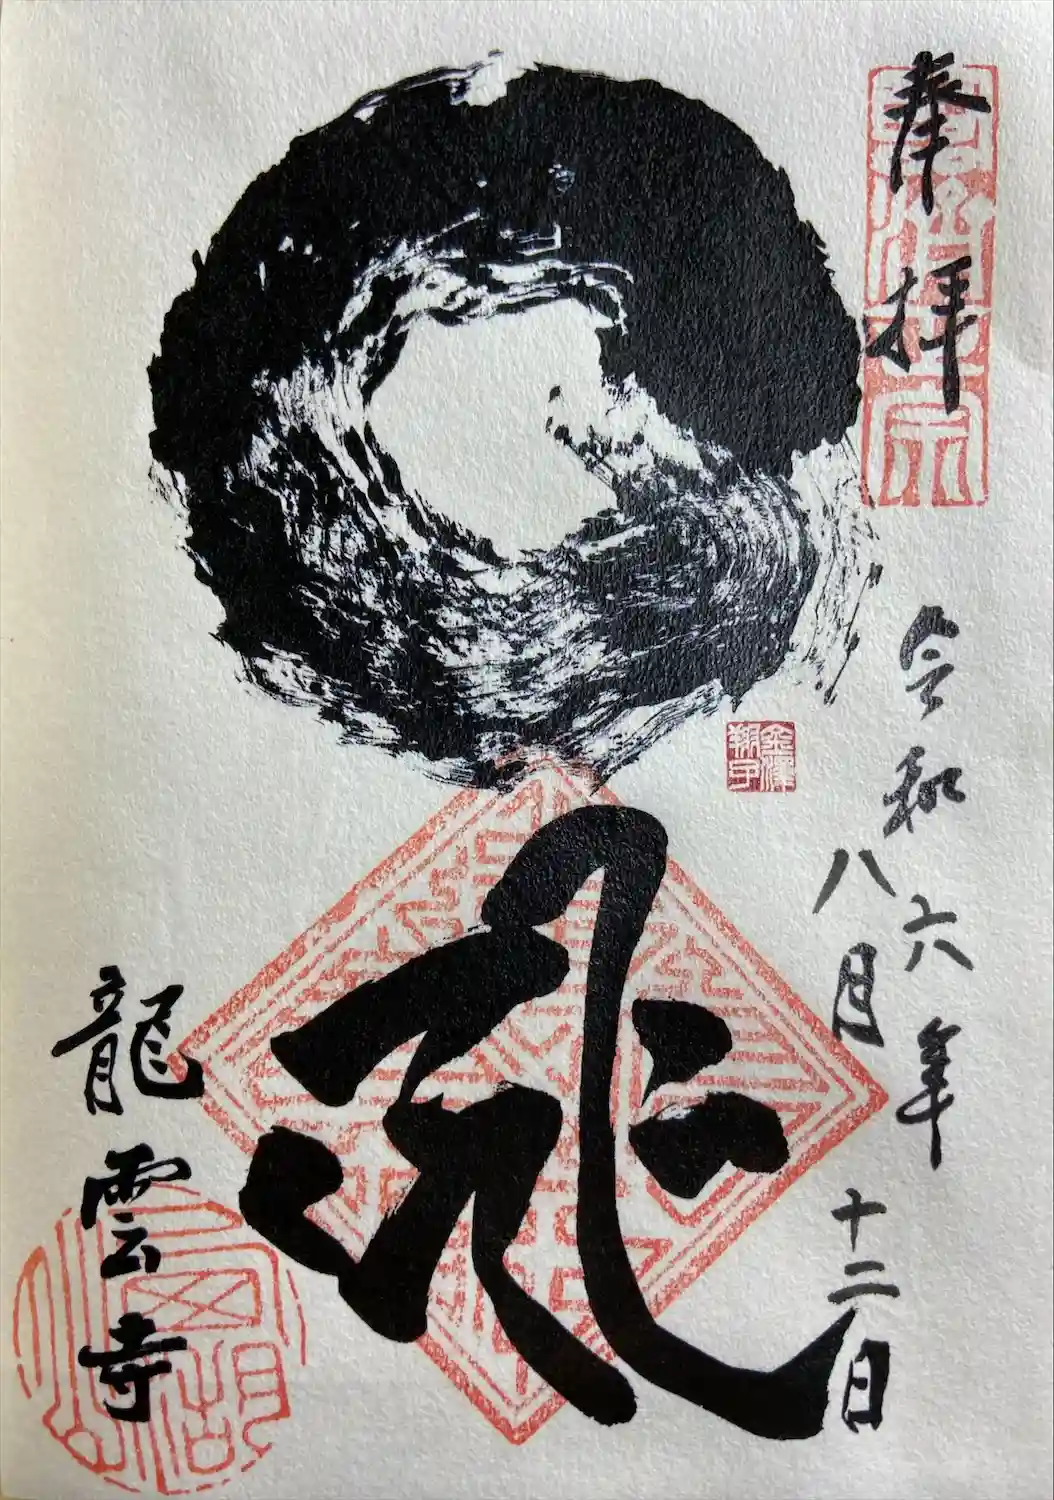 奉拝
令和六年
八月十二日
金澤
翔子
飛
龍雲寺